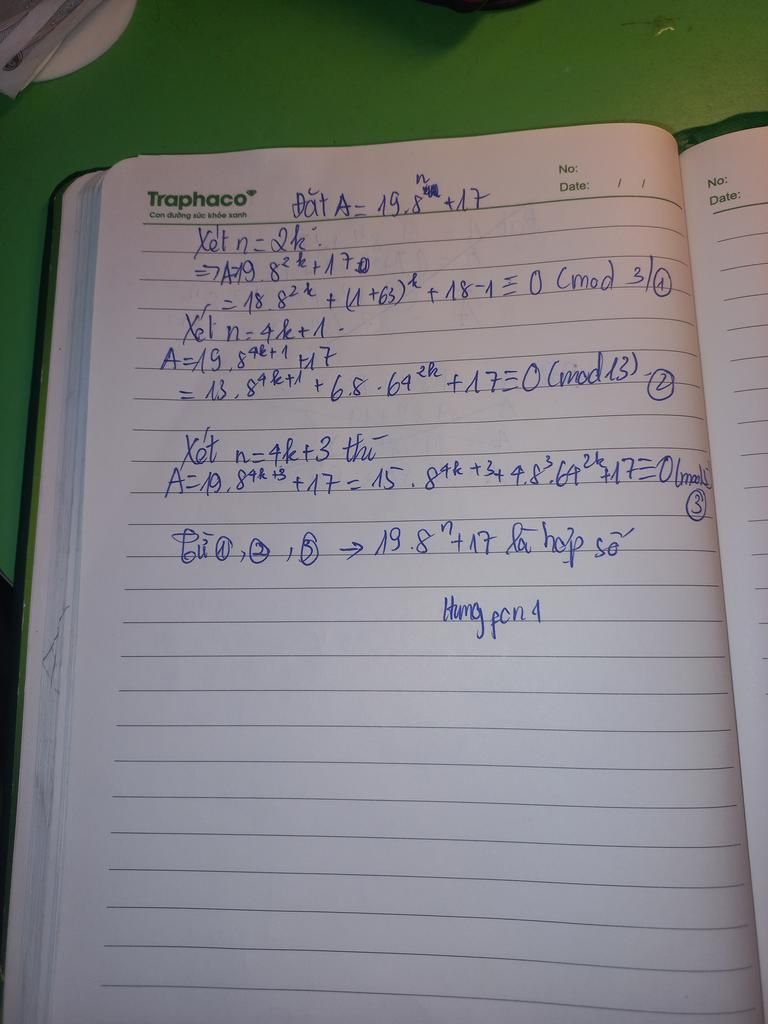 Traphaco
Con đường sức khỏe xanh
No:
Date: / /
No:
Date:
Đặt A = 19.8^n + 17
Xét n = 2k :
=> A=19.8^2k + 17
= 18.8^2k + (1+63)^k + 18-1 ≡ 0 (mod 3) ①
Xét n = 4k+1.
A=19.8^4k+1 + 17
= 13.8^4k+1 + 6.8.64^2k + 17 ≡ 0 (mod 13) ②
Xét n=4k+3 thì
A=19.8^4k+3 + 17 = 15.8^4k+3 + 4.8^3.64^2k + 17 ≡ 0 (mod
③
Từ ①, ②, ③ → 19.8^n + 17 là hợp số